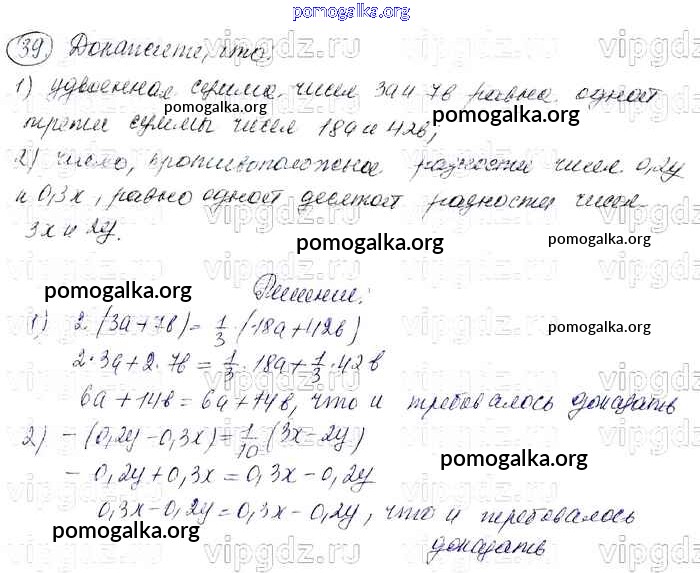 pomogalka.org
39 Докажите, что:
1) удвоенная сумма чисел 3a и 7b равна одной
pomogalka.org pomogalka.org
трети суммы чисел 18a и 42b;
2) число, противоположное разности чисел 0,2y
и 0,3x, равно одной десятой разности чисел
3x и 2y.
pomogalka.org pomogalka.org
Решение:
pomogalka.org
1) 2·(3a+7b)= 1/3·(18a+42b)
pomogalka.org
2·3a+2·7b = 1/3·18a+1/3·42b
6a+14b = 6a+14b, что и требовалось доказать
2) -(0,2y-0,3x)= 1/10 (3x-2y)
pomogalka.org
-0,2y+0,3x=0,3x-0,2y
0,3x-0,2y=0,3x-0,2y, что и требовалось
pomogalka.org
доказать
vipgdz.ru